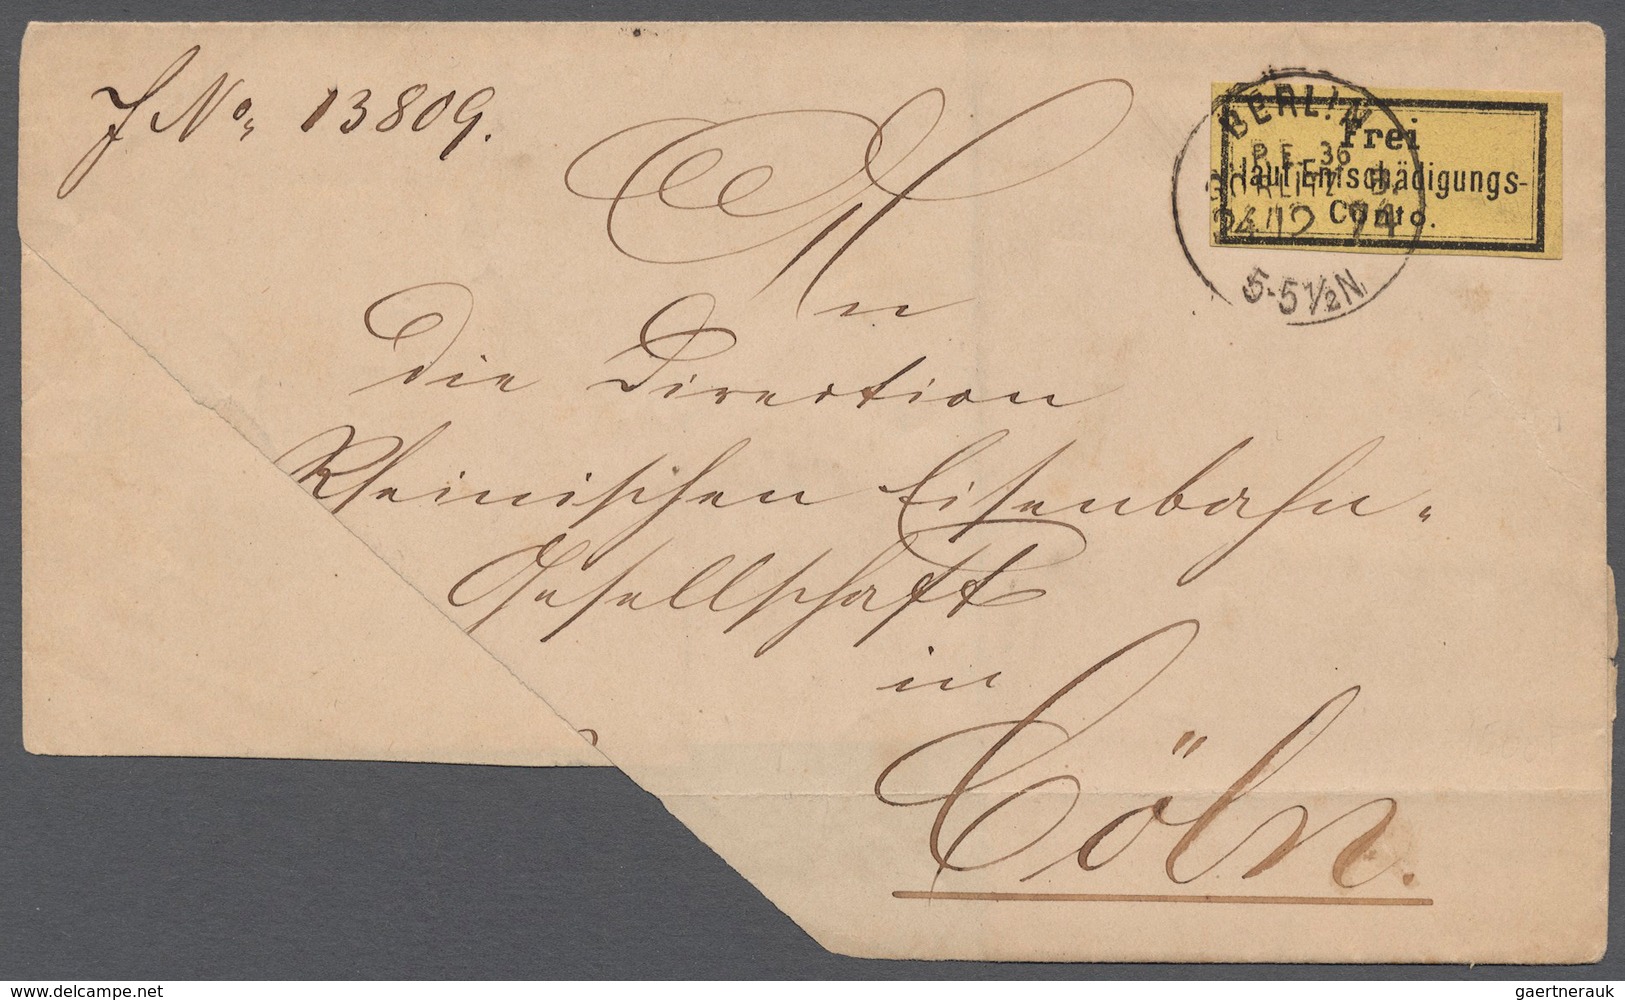 J No. 13809.
BERLIN
P.E. 36
GÖRLITZ. B.
24/12 74
5-5½N.
Frei
laut Entschädigungs-
Conto.
An
die Direction
Rheinischen Eisenbahn-
Gesellschaft
in
Cöln.
www.delcampe.net
gaertnerauk